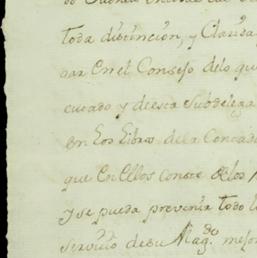 toda distincion, y Clarida
dar en el Consejo delo que
cutado y desta Subdelega
en Los Libros de la Contad
que En Ellos Conste delos
y se pueda prevenir todo l
servicio de su Mag.d mejor